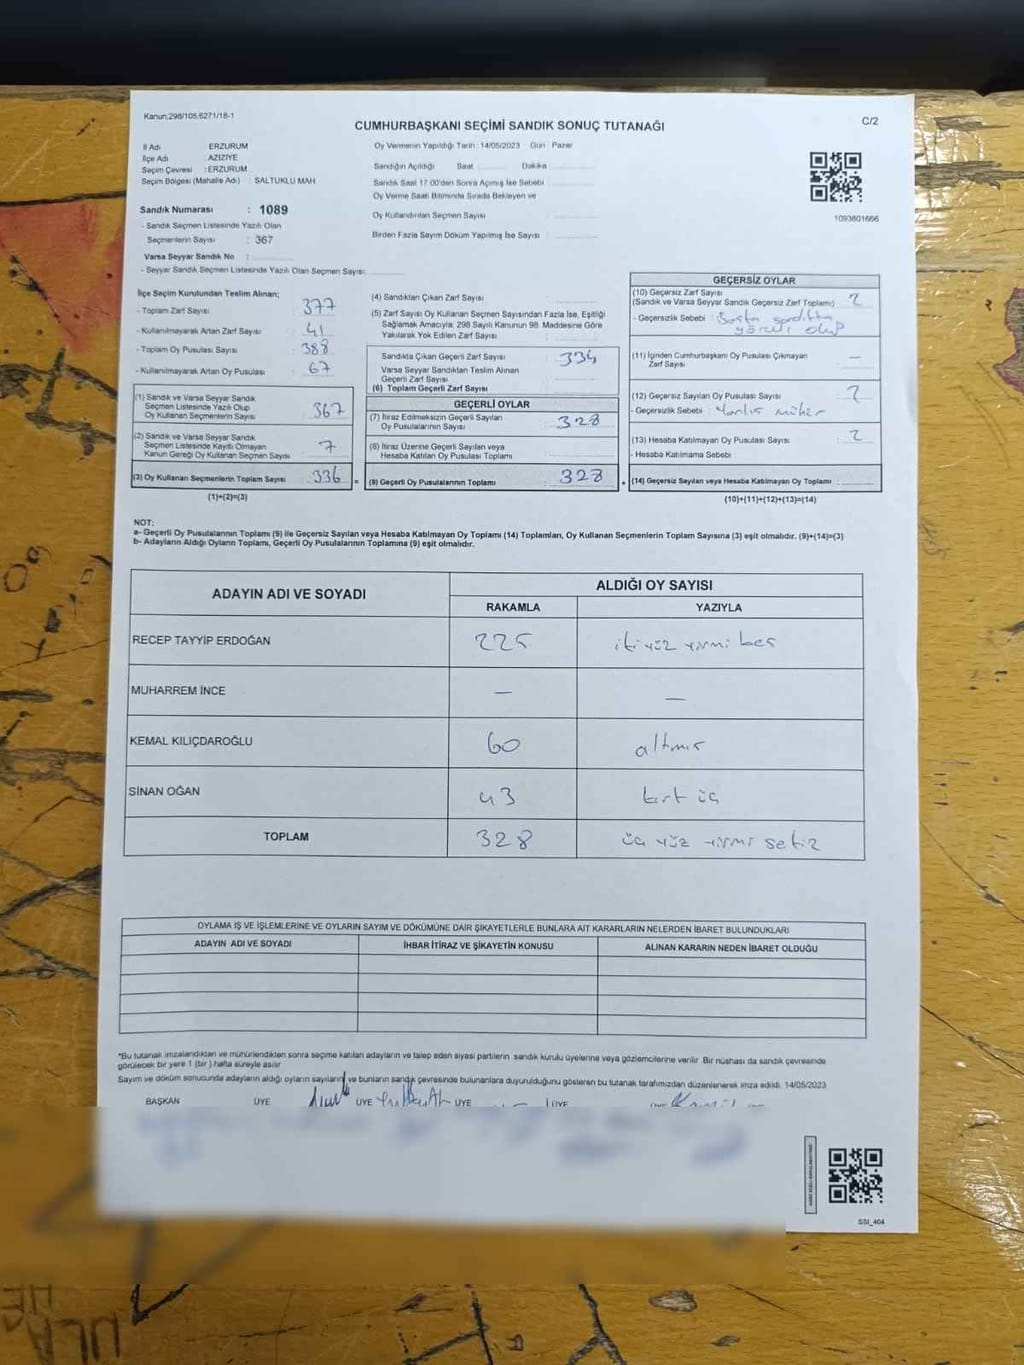 Kanun;298/105,6271/18-1
C/2
CUMHURBAŞKANI SEÇİMİ SANDIK SONUÇ TUTANAĞI
İl Adı ERZURUM
İlçe Adı AZİZİYE
Seçim Çevresi :ERZURUM
Seçim Bölgesi (Mahalle Adı) : SALTUKLU MAH.
Sandık Numarası : 1089
- Sandık Seçmen Listesinde Yazılı Olan
Seçmenlerin Sayısı : 367
Varsa Seyyar Sandık No :
- Seyyar Sandık Seçmen Listesinde Yazılı Olan Seçmen Sayısı:
Oy Vermenin Yapıldığı Tarih :14/05/2023 Gün : Pazar
Sandığın Açıldığı Saat Dakika
Sandık Saat 17:00'den Sonra Açılmış İse Sebebi :
Oy Verme Saati Bitiminde Sırada Bekleyen ve
Oy Kullandırılan Seçmen Sayısı :
Birden Fazla Sayım Döküm Yapılmış İse Sayısı :
1093801666
İlçe Seçim Kurulundan Teslim Alınan;
- Toplam Zarf Sayısı : 377
- Kullanılmayarak Artan Zarf Sayısı : 41
- Toplam Oy Pusulası Sayısı : 388
- Kullanılmayarak Artan Oy Pusulası : 67
(1) Sandık ve Varsa Seyyar Sandık
Seçmen Listesinde Yazılı Olup
Oy Kullanan Seçmenlerin Sayısı : 367
(2) Sandık ve Varsa Seyyar Sandık
Seçmen Listesinde Kayıtlı Olmayan
Kanun Gereği Oy Kullanan Seçmen Sayısı : 7
(3) Oy Kullanan Seçmenlerin Toplam Sayısı : 336
(1)+(2)=(3)
(4) Sandıktan Çıkan Zarf Sayısı :
(5) Zarf Sayısı Oy Kullanan Seçmen Sayısından Fazla İse, Eşitliği
Sağlamak Amacıyla, 298 Sayılı Kanunun 98. Maddesine Göre
Yakılarak Yok Edilen Zarf Sayısı :
Sandıkta Çıkan Geçerli Zarf Sayısı : 334
Varsa Seyyar Sandıktan Teslim Alınan
Geçerli Zarf Sayısı :
(6) Toplam Geçerli Zarf Sayısı :
GEÇERLİ OYLAR
(7) İtiraz Edilmeksizin Geçerli Sayılan
Oy Pusulalarının Sayısı : 328
(8) İtiraz Üzerine Geçerli Sayılan veya
Hesaba Katılan Oy Pusulası Toplamı :
(9) Geçerli Oy Pusulalarının Toplamı : 328
GEÇERSİZ OYLAR
(10) Geçersiz Zarf Sayısı
(Sandık ve Varsa Seyyar Sandık Geçersiz Zarf Toplamı) : 2
- Geçersizlik Sebebi : Başka sandıkta
(11) İçinden Cumhurbaşkanı Oy Pusulası Çıkmayan
Zarf Sayısı : —
(12) Geçersiz Sayılan Oy Pusulası Sayısı :
- Geçersizlik Sebebi : Yanlış mühür
(13) Hesaba Katılmayan Oy Pusulası Sayısı : 2
- Hesaba Katılmama Sebebi :
(14) Geçersiz Sayılan veya Hesaba Katılmayan Oy Toplamı :
(10)+(11)+(12)+(13)=(14)
NOT:
a- Geçerli Oy Pusulalarının Toplamı (9) ile Geçersiz Sayılan veya Hesaba Katılmayan Oy Toplamı (14) Toplamları, Oy Kullanan Seçmenlerin Toplam Sayısına (3) eşit olmalıdır. (9)+(14)=(3)
b- Adayların Aldığı Oyların Toplamı, Geçerli Oy Pusulalarının Toplamına (9) eşit olmalıdır.
ADAYIN ADI VE SOYADI
ALDIĞI OY SAYISI
RAKAMLA YAZIYLA
RECEP TAYYİP ERDOĞAN 225 iki yüz yirmi beş
MUHARREM İNCE — —
KEMAL KILIÇDAROĞLU 60 altmış
SİNAN OĞAN 43 kırk üç
TOPLAM 328 üç yüz yirmi sekiz
OYLAMA İŞ VE İŞLEMLERİNE VE OYLARIN SAYIM VE DÖKÜMÜNE DAİR ŞİKAYETLERLE BUNLARA AİT KARARLARIN NELERDEN İBARET BULUNDUKLARI
ADAYIN ADI VE SOYADI İHBAR İTİRAZ VE ŞİKAYETİN KONUSU ALINAN KARARIN NEDEN İBARET OLDUĞU
*Bu tutanak imzalandıktan ve mühürlendikten sonra seçime katılan adayların ve talep eden siyasi partilerin sandık kurulu üyelerine veya gözlemcilerine verilir. Bir nüshası da sandık çevresinde
görülecek bir yere 1 (bir ) hafta süreyle asılır
Sayım ve döküm sonucunda adayların aldığı oyların sayıları ve bunların sandık çevresinde bulunanlara duyurulduğunu gösteren bu tutanak tarafımızdan düzenlenerek imza edildi. 14/05/2023
BAŞKAN ÜYE ÜYE ÜYE ÜYE
SSI_404